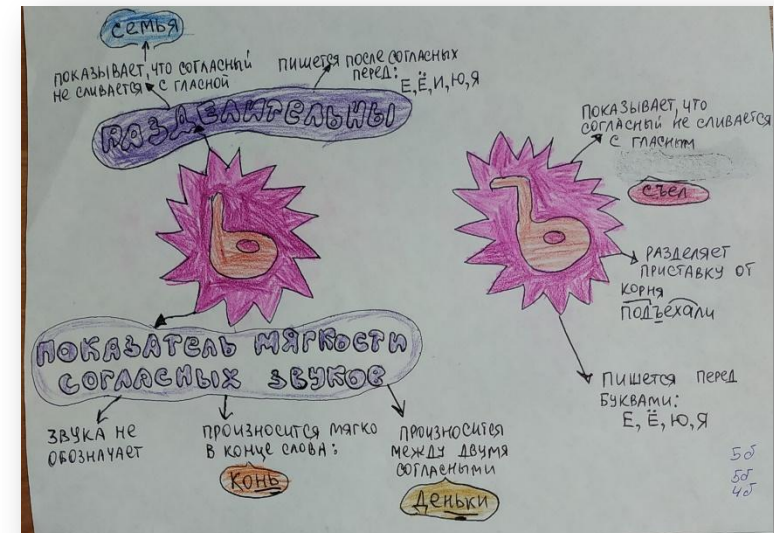 СЕМЬЯ
ПОКАЗЫВАЕТ, ЧТО СОГЛАСНЫЙ
НЕ СЛИВАЕТСЯ С ГЛАСНОЙ
ПИШЕТСЯ ПОСЛЕ СОГЛАСНЫХ
ПЕРЕД:
Е, Ё, И, Ю, Я
РАЗДЕЛИТЕЛЬНЫ
Ь
ПОКАЗАТЕЛЬ МЯГКОСТИ
СОГЛАСНЫХ ЗВУКОВ
ЗВУКА НЕ
ОБОЗНАЧАЕТ
ПРОИЗНОСИТСЯ МЯГКО
В КОНЦЕ СЛОВА:
КОНЬ
ПРОИЗНОСИТСЯ
МЕЖДУ ДВУМЯ
СОГЛАСНЫМИ
ДЕНЬКИ
Ъ
ПОКАЗЫВАЕТ, ЧТО
СОГЛАСНЫЙ НЕ СЛИВАЕТСЯ
С ГЛАСНЫМ
СЪЕЛ
РАЗДЕЛЯЕТ
ПРИСТАВКУ ОТ
КОРНЯ
ПОДЪЕХАЛИ
ПИШЕТСЯ ПЕРЕД
БУКВАМИ:
Е, Ё, Ю, Я
5б
5б
4б